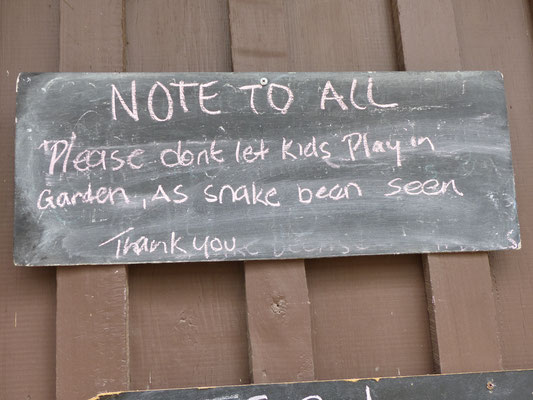 NOTE TO ALL
Please dont let kids Play in
Garden, As snake been seen
Thank you